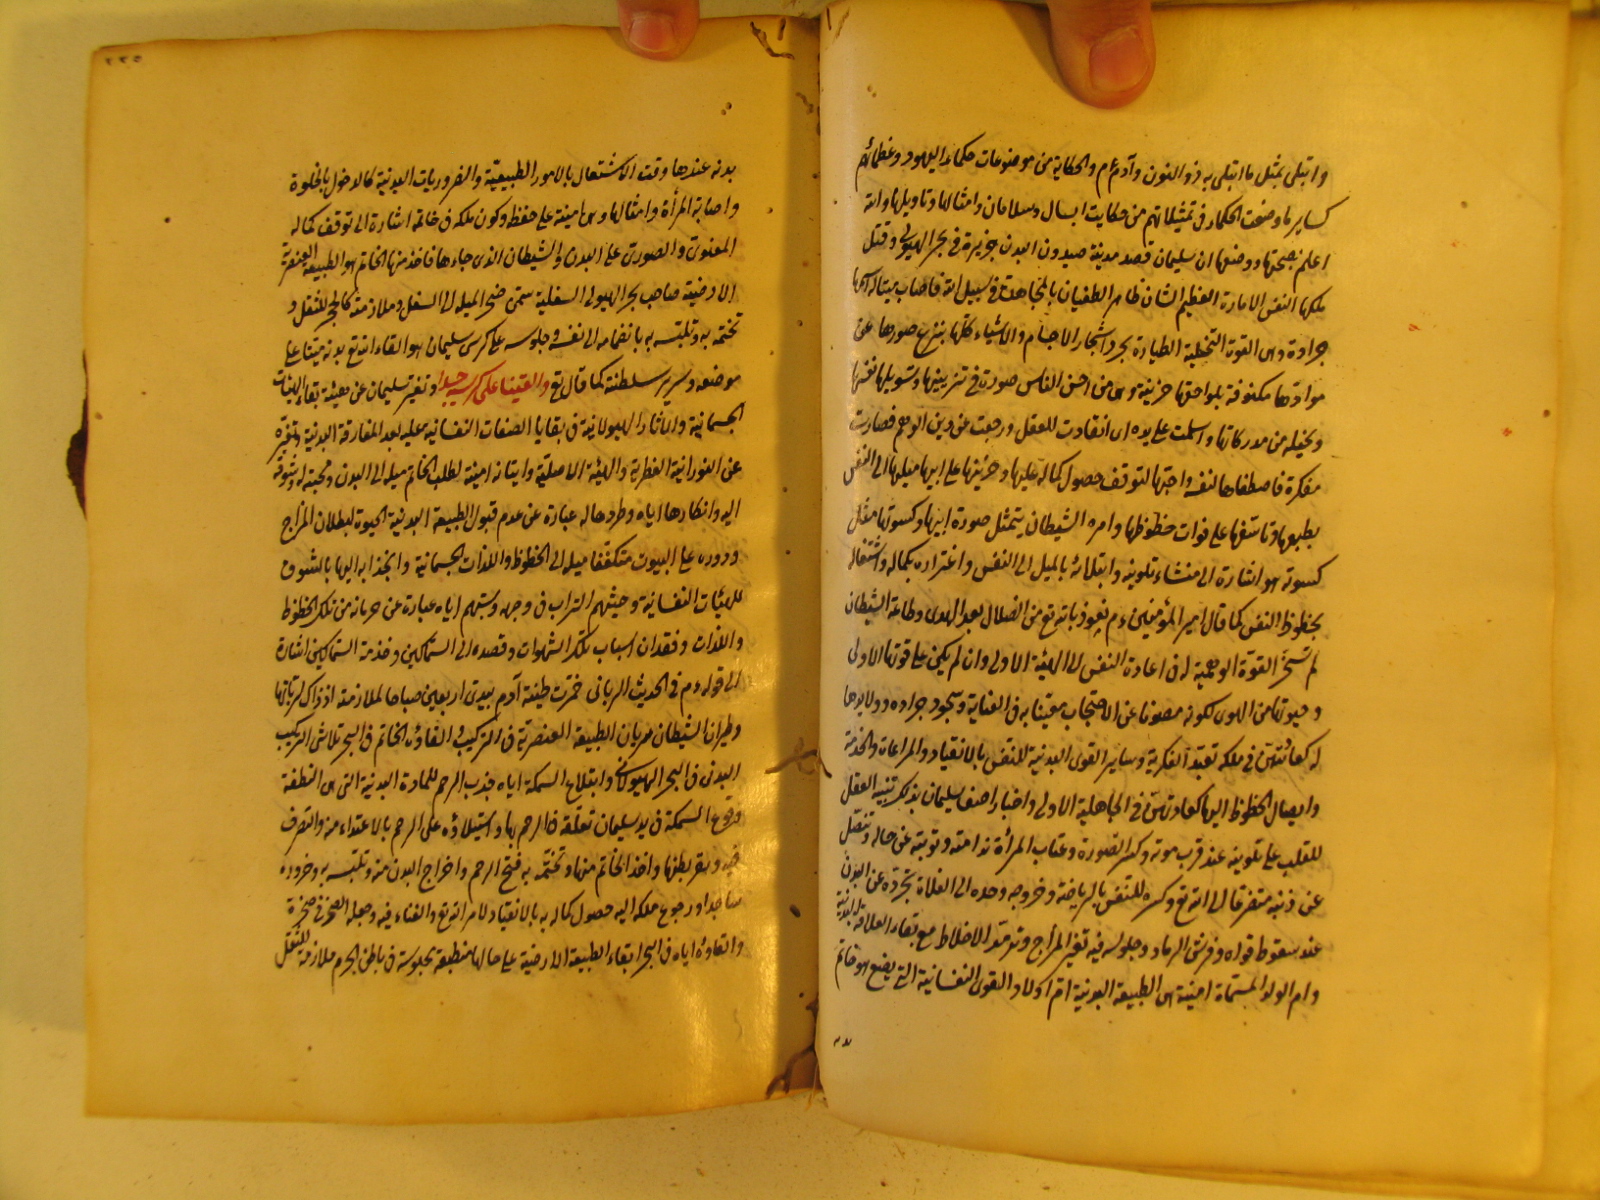 وابتلى بمثل ما ابتلى به ذو النون وآدم ءم والحكاية من موضوعات حكماء اليهود وعظمائهم
كساير ما وضعت الحكماء فى تمثيلاتهم من حكايت ابسال وسلامان وامثالها وتاويلها والله
اعلم بصحتها ووضعها ان سليمان قصد مدينة صيدون البدن جزيرة فى بحر الهيولى وقتل
ملكها النفس الامارة العظيم الشان ظاهر الطغيان بالمجاهدة فى سبيل الله فاصاب بنتا له اسمها
جرادة وهى القوة التخيلية الطيارة بجرد اشجار الاجسام والاشياء كلها بنزع صورها عن
موادها مكنوفة بلواحقها حزينة وهى من احسن الناس صورة فى تزيينها وتسويلها نفسها
وتخيله من مدركاتها واسلمت على يده اى انقادت للعقل ورجعت من دين الوهم فصارت
مفكرة فاصطفاها لنفسه واحبها لتوقف حصول كماله عليها وحزنها على ابيها ميلها الى النفس
بطبعها وتاسفها على فوات حظوظها وامره الشيطان بتمثل صورة ابيها وكسوتها مثل
كسوته هو اشارة الى منشاء تلوينه وابتلائه بالميل الى النفس واغتراره بكماله واشتغاله
بحظوظ النفس كما قال امير المؤمنين ءم نعوذ بالله تع من الضلال بعد الهدى وطاعة الشيطان
لم تسخر القوة الوهمية له فى اعادة النفس الى الهيئة الاولى وان لم يكن على قوتها الاولى
وحيوتها من الهوى لكونه مصونا عن الاحتجاب معينا به فى العناية وسجود جراده وولايدها
له كعادتهن فى ملكه تعبد الفكرية وساير القوى البدنية للنفس بالانقياد والمراعاة والخدمة
وايصال الحظوظ اليها كعادتهن فى الجاهلية الاولى واخبار اصف سليمان بذلك تنبيه العقل
للقلب على تلوينه عند قرب موته وكسر الصورة وعتاب المرأة ندامته وتوبته عن حاله وتنصل
عن ذنبه متفرقا الى الله تع وكسره للنفس بالرياضة وخروجه وحده الى الفلاة تجرده عن البدن
عند سقوط قواه وفرش الرماد وجلوسه فيه تغير المزاج وترمد الاخلاط مع بقاء العلاقة البدنية
وام الولد المسماة امينة هى الطبيعة البدنية ام اولاد القوى النفسانية التى يضع هو خاتم
بدنه
٢٢٥
بدنه عندها وقت الاشتغال بالامور الطبيعية والضروريات البدنية كالدخول بالخلوة
واصابة المرأة وامثالها وهى امينة على حفظه وكون ملكه فى خاتمه اشارة الى توقف كماله
المعنوى والصورى على البدن والشيطان الذى جاءها فاخذ منها الخاتم هو الطبيعة العنصرية
الارضية صاحب بحر الهيولى السفلية سمى صخر الميله الى السفل وملازمته كالحجر للثقل و
تختمه به وتلبسه به بانضمامه الى نفسه وجلوسه على كرسى سليمان هو القاء الله تع بدنه ميتا على
موضعه وسرير سلطنة كما قال تع والقينا على كرسيه جسدا وتغير سليمان عن هيئته بقاء الهيئات
الجسمانية والاثار الهيولانية فى بقايا الصفات النفسانية عليه بعد المفارقة البدنية وتغيره
عن النورانية الفطرية والهيئة الاصلية واتيانه امينة لطلب الخاتم ميله الى البدن ومحبته له وشوقه
اليه وانكارها اياه وطردها له عبارة عن عدم قبول الطبيعة البدنية الحيوة لبطلان المزاج
ودوره على البيوت متكففا ميله الى الحظوظ واللذات الجسمانية وانجذابه اليها بالشوق
للهيئات النفسانية وحثيهم التراب فى وجهه وسبهم اياه عبارة عن حرمانه من تلك الحظوظ
واللذات وفقدان اسباب تلك الشهوات وقصده الى السماكين وخدمة السماكين اشارة
الى قوله ءم فى الحديث الربانى خمرت طينة آدم بيدى اربعين صباحا لملازمته اذ ذاك لرتباتها
وطيران الشيطان سريان الطبيعة العنصرية فى التركيب والقاؤه الخاتم فى البحر تلاشى التركيب
البدنى فى البحر الهيولانى وابتلاع السمكة اياه جذب الرحم للمادة البدنية التى هى النطفة
ووقوع السمكة فى يد سليمان تعلقه فى الرحم بها واستيلاؤه على الرحم بالاغتذاء منه والتصرف
فيه وبقر بطنها واخذ الخاتم منها وتختمه به فتح الرحم واخراج البدن منه وتلبسه به وخروره
ساجدا ورجوع ملكه اليه حصول كماله به بالانقياد لامر الله تع والفناء فيه وجعله الصخر فى صخرة
والقاؤه اياه فى البحر ابقاء الطبيعة الارضية على حالها منطبعة محبوسة فى باطن الجرم ملازمة للثقل